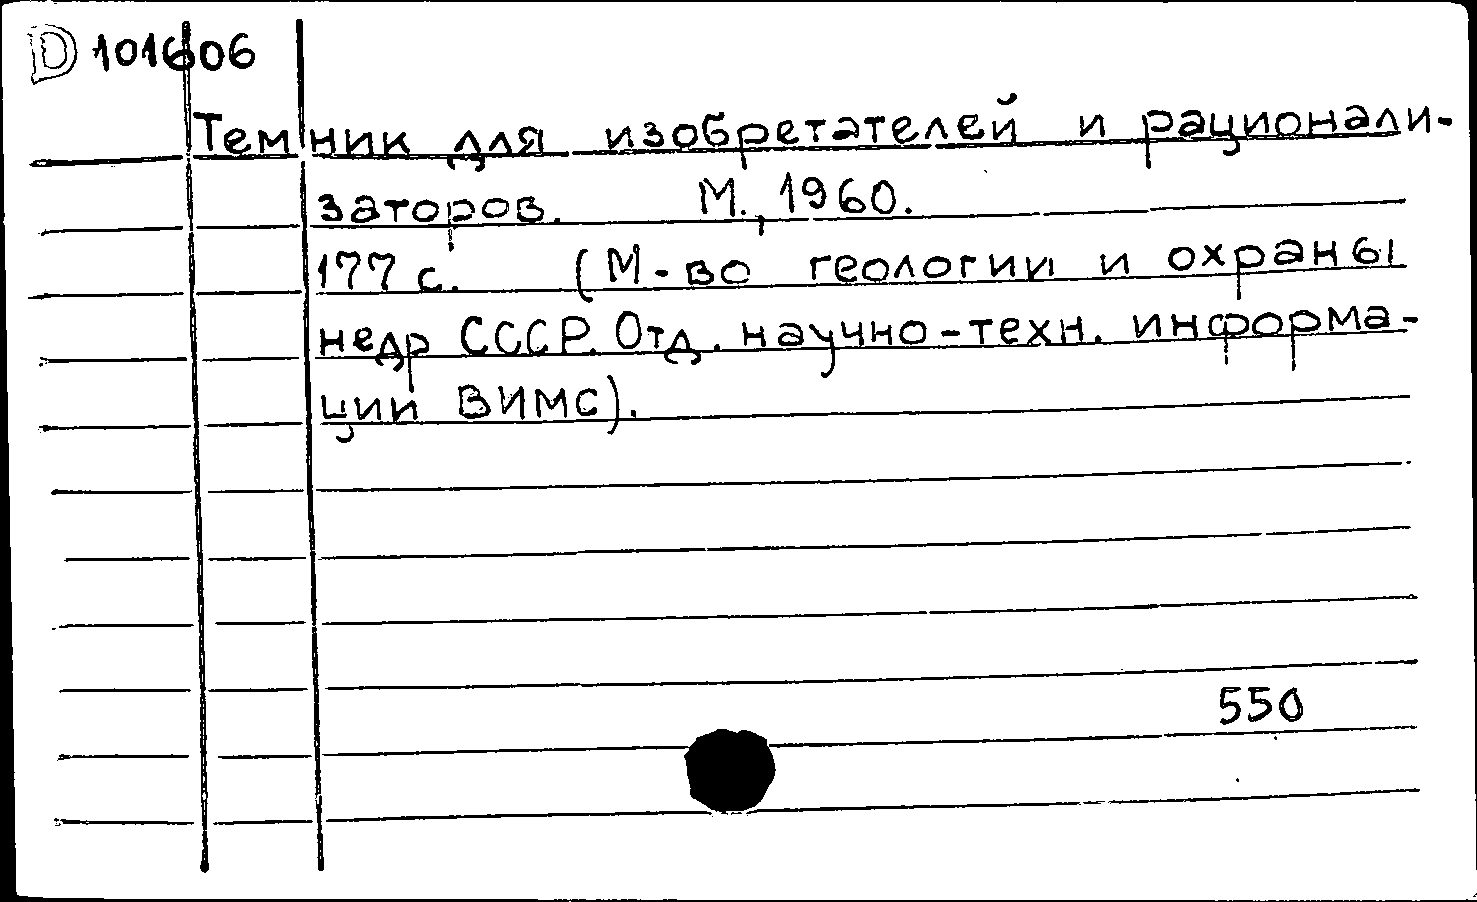 D 101606
Темник для изобретателей и рационали-
заторов. М., 1960.
177 с. (М-во геологии и охраны
недр СССР. Отд. научно-техн. информа-
ции ВИМС).
550